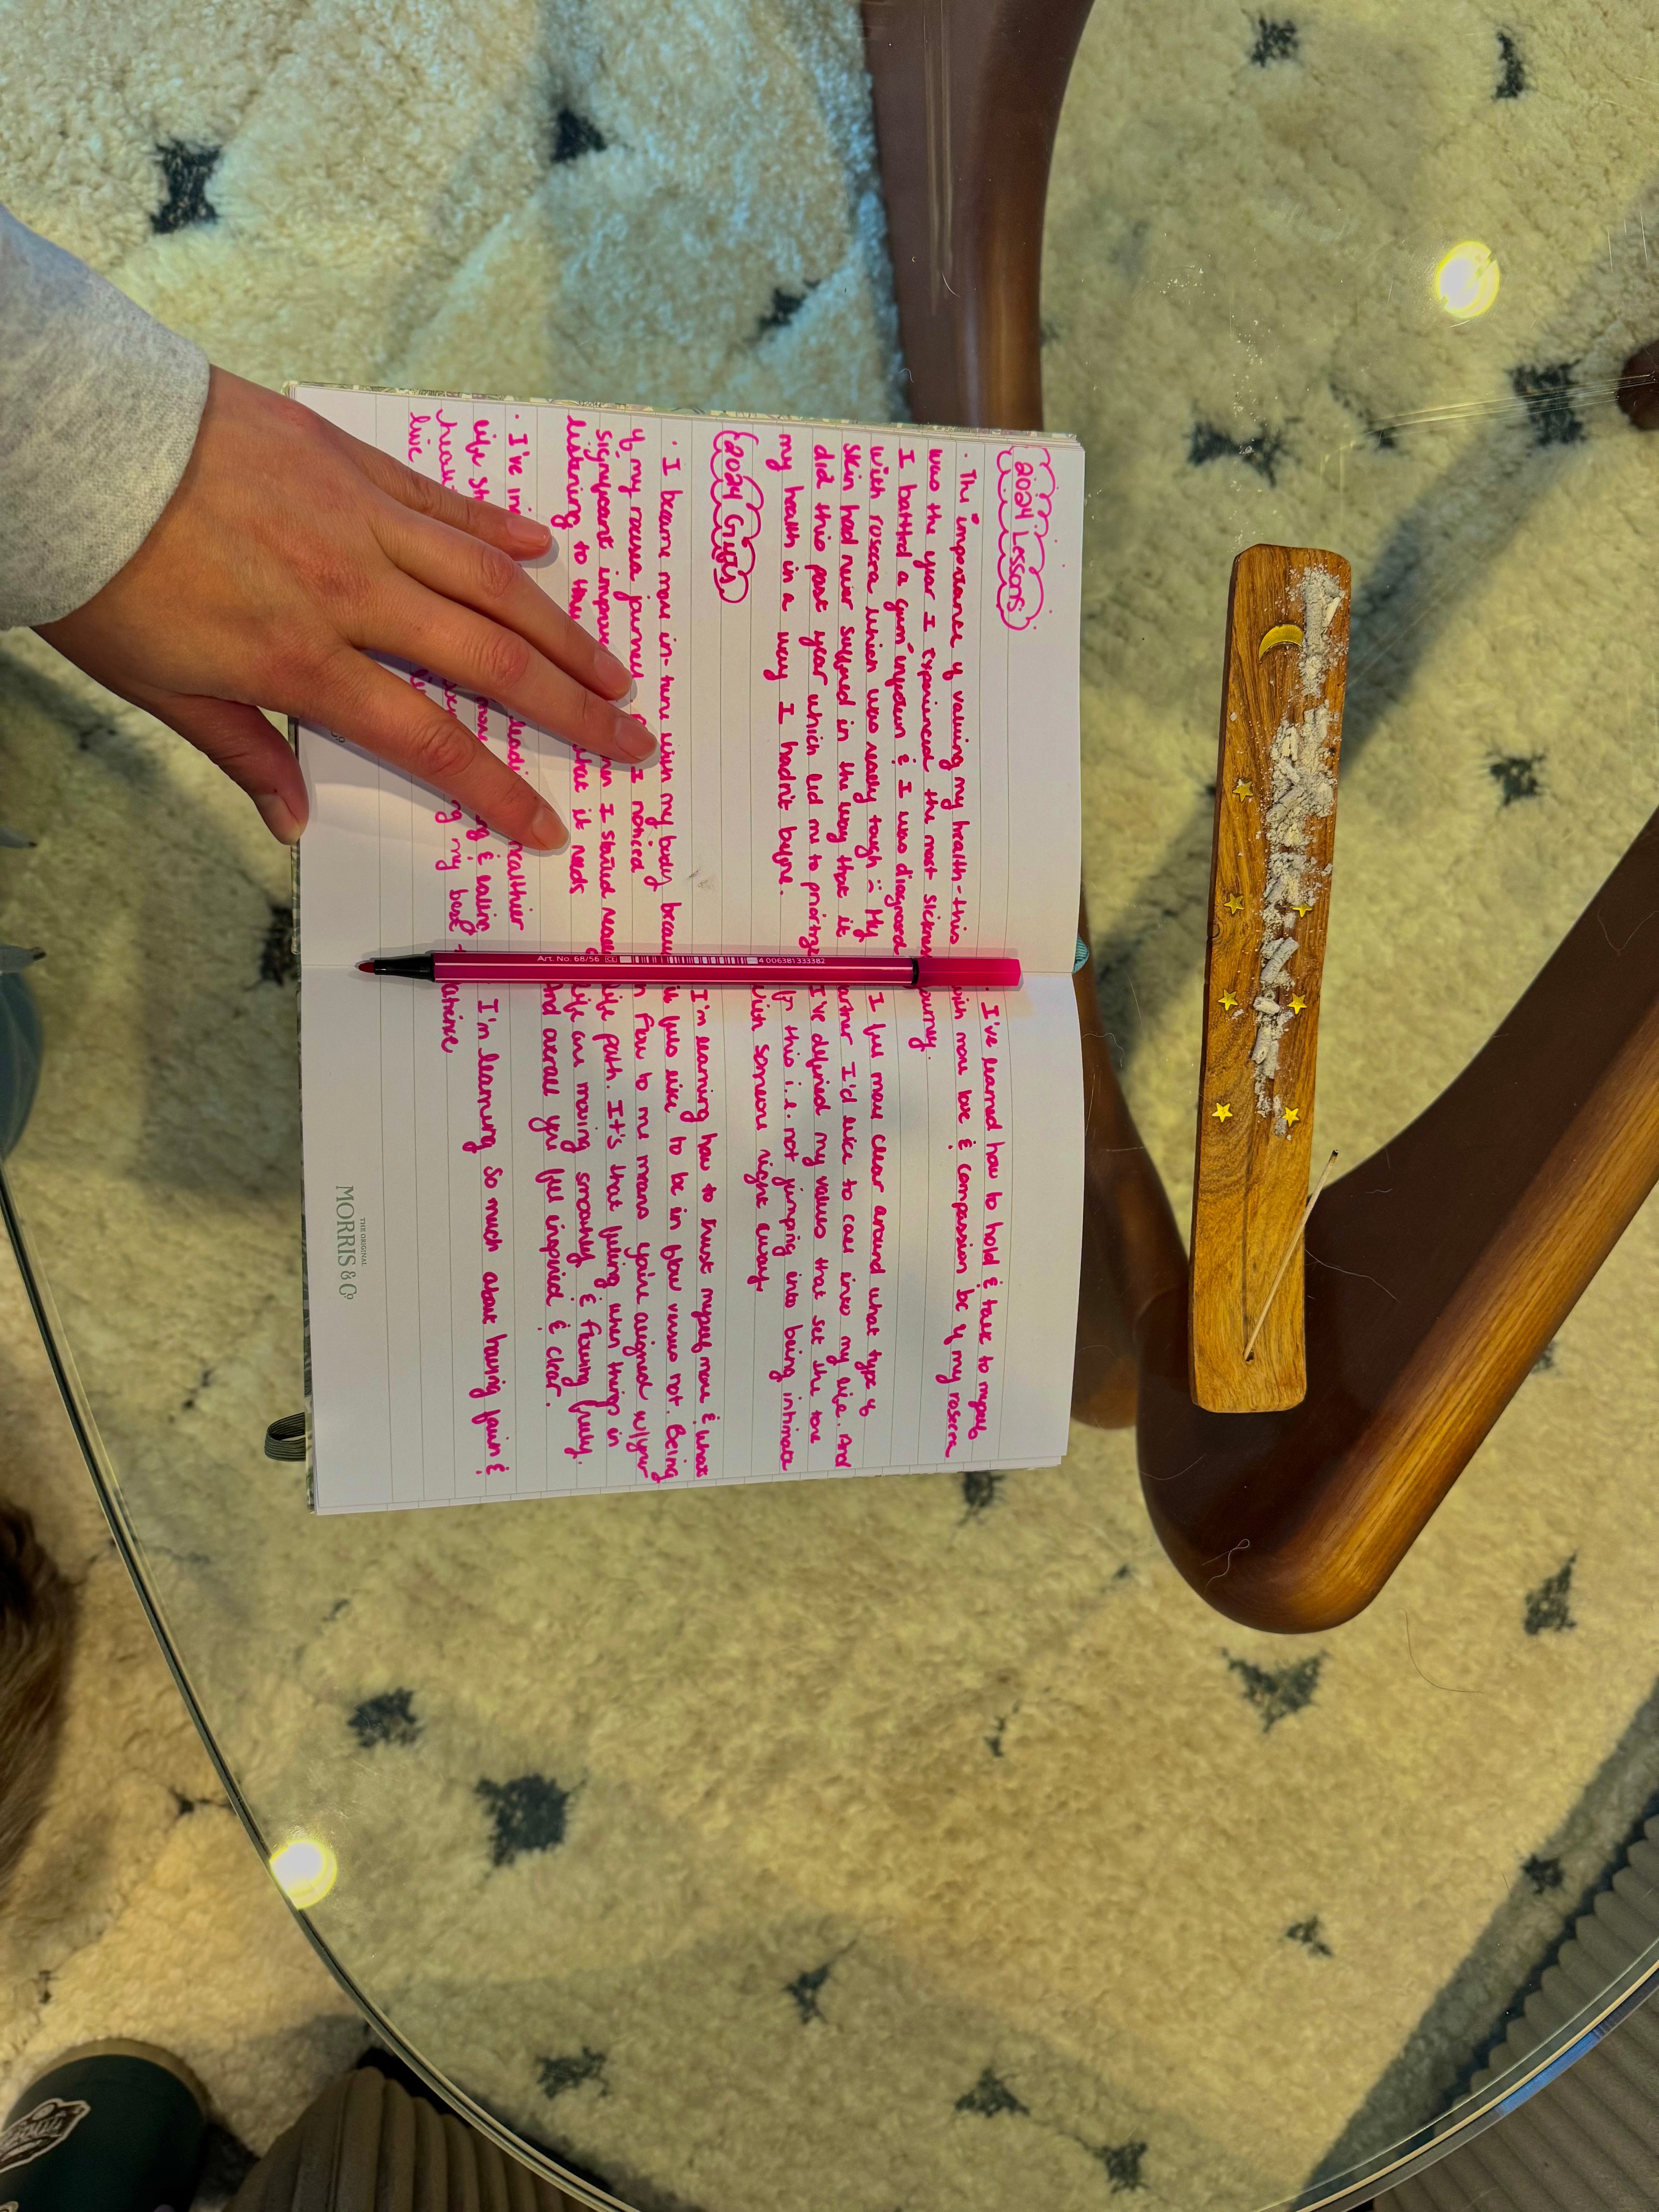 2024 Lessons
· The importance of valuing my health - this
was the year I experienced the most sickness
I battled a gum infection & I was diagnosed
with rosacea which was really tough :( My
skin had never suffered in the way that it
did this past year which led me to prioritize
my health in a way I hadn't before.
2024 Gifts
· I became more in-tune with my body becau
of my rosacea journey I noticed
significant improve when I started really
listening to what it needs
· I've in leadi healthier
life st more & eating
heal
live my best
· I've learned how to hold & talk to myself
with more love & compassion bc of my rosacea
journey.
I feel more clear around what type of
partner I'd like to call into my life. And
I've defined my values that set the tone
for this i.e. not jumping into being intimate
with someone right away.
I'm learning how to trust myself more & what
it feels like to be in flow versus not. Being
in Flow to me means you're aligned w/ your
life path. It's that feeling when things in
life are moving smoothly & flowing freely.
And overall you feel inspired & clear.
I'm learning so much about having faith &
THE ORIGINAL
MORRIS & Co
Art. No. 68/56
4 006381 333382